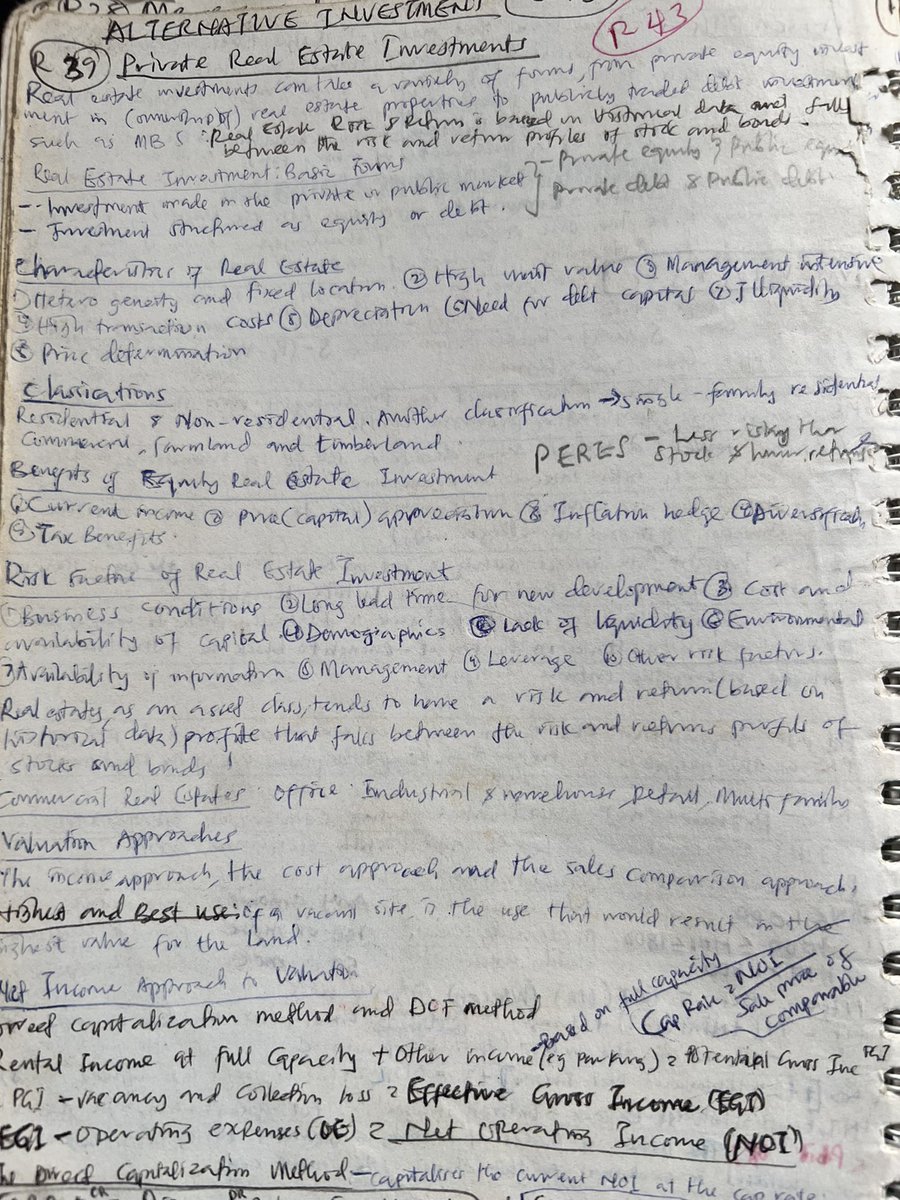 ALTERNATIVE INVESTMENT
R 43
R 39 Private Real Estate Investments
Real estate investments can take a variety of forms, from private equity invest
ment in (ownership of) real estate properties to publicly traded debt investment
such as MBS. Real Estate Risk & Return is based on historical data and fall
between the risk and return profiles of stock and bonds.
Real Estate Investment: Basic Forms
- Investment made in the private or public market
- Investment structured as equity or debt.
- Private equity & Public equi
private debt & Public debt
Characteristics of Real Estate
① Heterogenety and fixed location. ② High unit value ③ Management intensive
④ High transaction costs ⑤ Depreciation ⑥ Need for debt capital ⑦ Illiquidity
⑧ Price determination
Classications
Residential & Non-residential. Another classification → single-family residential
Commercial, Farmland and timberland.
PERES - Less risky than
stock & lower returns
Benefits of Equity Real Estate Investment
① Current income ② price (capital) appreciation ③ Inflation hedge ④ Diversificatn
⑤ Tax Benefits.
Risk Factor of Real Estate Investment
① Business conditions ② Long lead time for new development ③ Cost and
availability of capital ④ Demographics ⑤ Lack of liquidity ⑥ Environmental
⑦ Availability of information ⑧ Management ⑨ Leverage ⑩ Other risk factors.
Real estates, as an asset class, tends to have a risk and return (based on
historical data) profile that falls between the risk and returns profile of
stocks and bonds!
Commercial Real Estates: Office. Industrial & warehouse, Retail, Multi family
Valuation Approaches
The income approach, the cost approach and the sales comparison approach.
Highest and Best use: of a vacant site is the use that would result in the
highest value for the land.
Income Approach to Valuation
Direct capitalization method and DCF method
- based on full capacity
Cap Rate = NOI
Sale price of
comparable
Rental Income at full Capacity + Other income (eg parking) = Potential Gross Inc PGI
PGI - vacancy and collection loss = Effective Gross Income (EGI)
EGI - Operating expenses (OE) = Net Operating Income (NOI)
Direct Capitalization Method - capitalises the current NOI at the cap rate